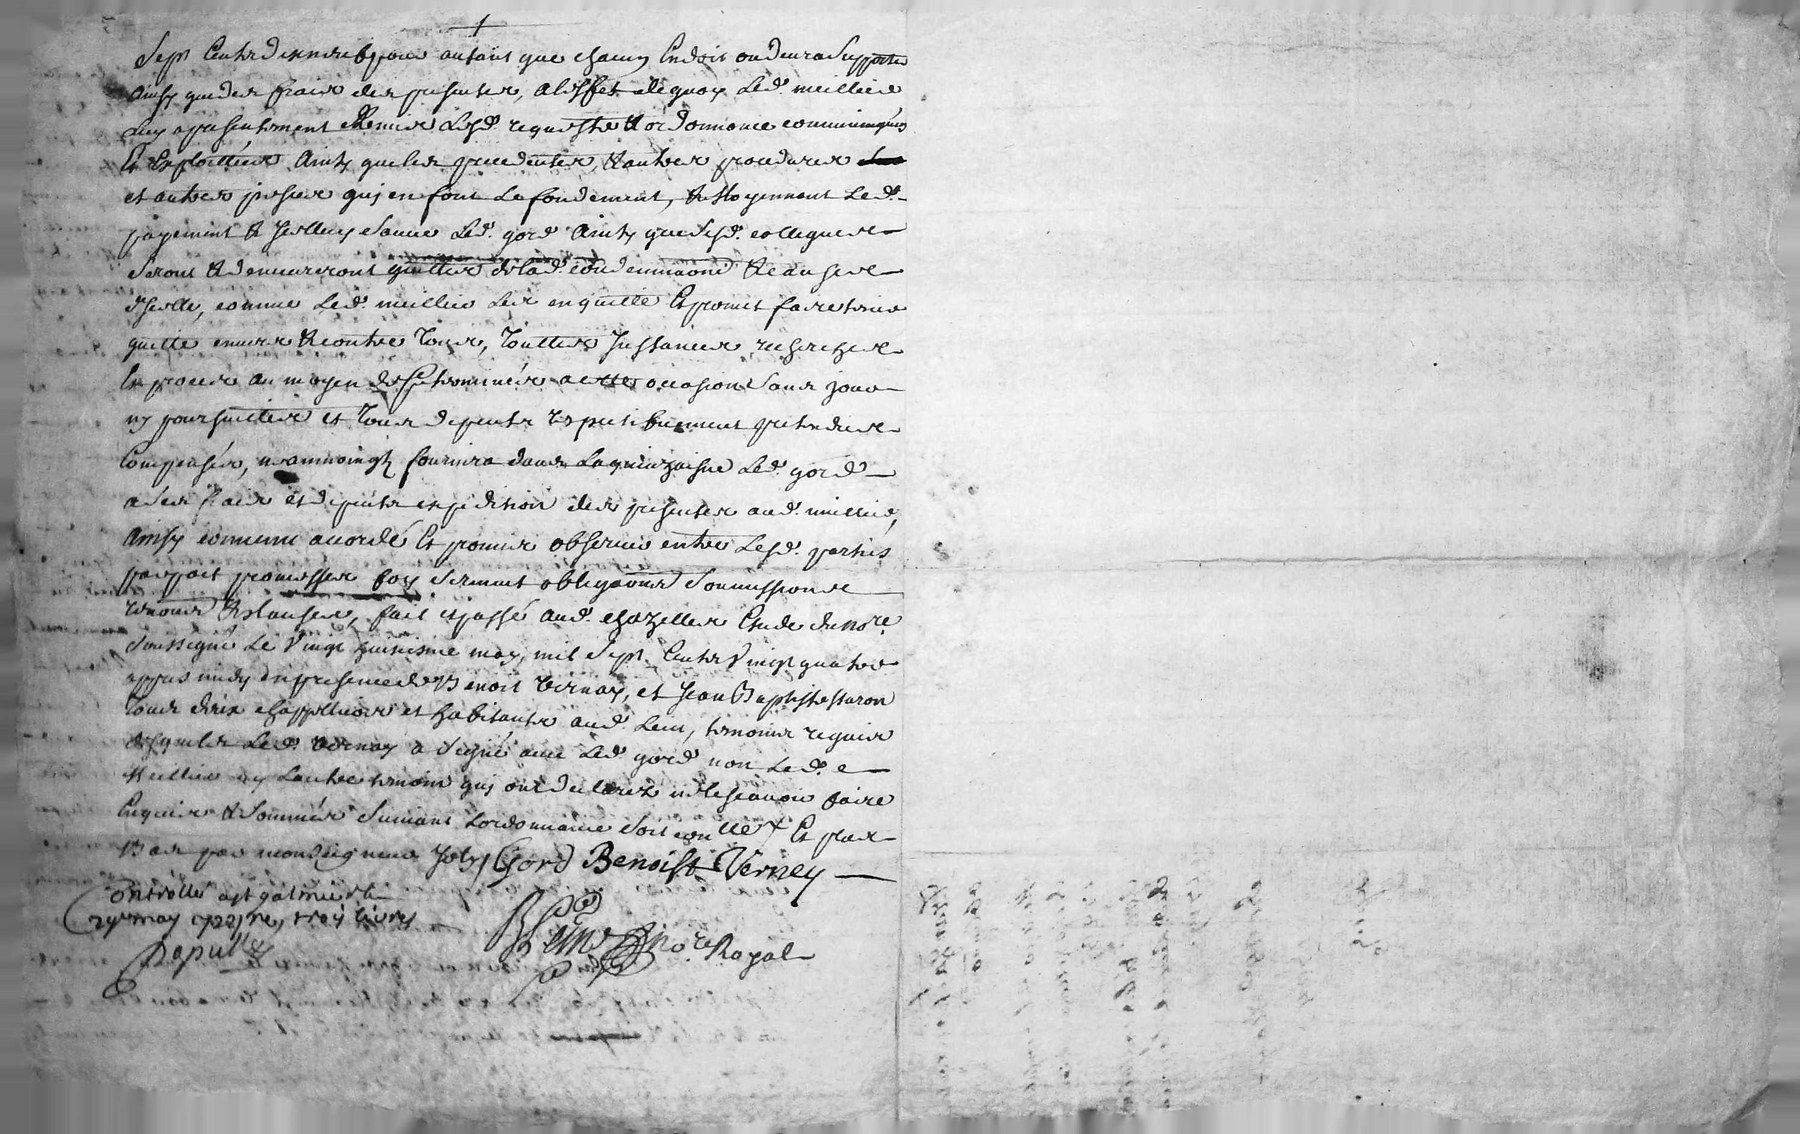 Sept Cents dixneuf pour autant que chacun En doit ou devra supporter
Ainsy que des frais des presentes, a l'effet dequoy Led. meillier
Luy a presentement Remis Lesd. requeste & ordonnance communiquées
Et Exploittées Ainsy que les precedentes, & autres procedures
et autres pieces quj en font Le fondement, & Moyennant Led.
payement & Jcelluy Sauve Led. gord Ainsy que Sesd. collegues
Seront & demeureront quittes de lad. condemnaon & causes
d'Jcelle, comme Led. meillier Les en quitte Et promet faire tenir
quitte envers & contre tous, Touttes Jnstances, recherches
Et proces au moyen de ce terminés a cette occasion Sans pouvoir
ny poursuittes et Tous depents respectivement pretendus
Compensés, neanmoingts fournira dans La quinzaisne Led. gord
a Ses frais et depents expedition des presentes aud. meillier,
Ainsy convenu accordé Et promis observer entre Lesd. parties
par foy Serment obligaons Soumissions
renons & clauses, fait & passé aud. chazelles Etude du nore.
Soussigné Le Vingt huitiesme may, mil Sept Cents Vingt quatre
appres midy En presence de Benoit Vernay, et Jean Baptiste
Tous deux chappelliers et habitants aud. Lieu, temoins requis
desquels Led. Vernay a Signé avec Led. gord non Led.
Meillier ny L'autre temoin quj ont declarez ne le scavoir faire
Enquis & Sommés Suivant L'ordonnance Soit conllé Et
Bas par monseigneur Gord Benoist Verney
Controllé a St galmier le
29e may 1724 re, troy livres
nore. Royal